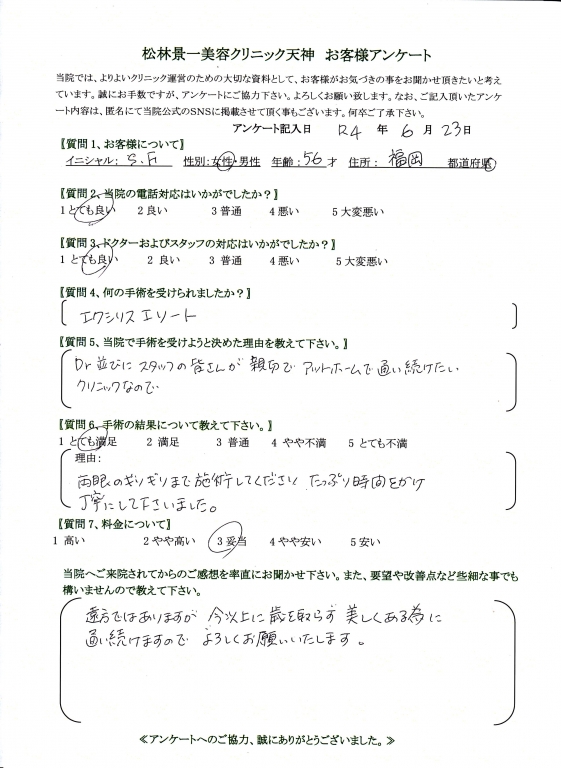 松林景一美容クリニック天神 お客様アンケート
当院では、よりよいクリニック運営のための大切な資料として、お客様がお気づきの事をお聞かせ頂きたいと考え
ています。誠にお手数ですが、アンケートにご協力下さい。よろしくお願い致します。なお、ご記入頂いたアンケ
ート内容は、匿名にて当院公式のSNSに掲載させて頂く事もございます。何卒ご了承下さい。
アンケート記入日 R4 年 6 月 23日
【質問1、お客様について】
イニシャル: S.F 性別:女性・男性 年齢:56才 住所: 福岡 都道府県
【質問2、当院の電話対応はいかがでしたか?】
1とても良い 2良い 3普通 4悪い 5大変悪い
【質問3、ドクターおよびスタッフの対応はいかがでしたか?】
1とても良い 2 良い 3 普通 4悪い 5大変悪い
【質問4、何の手術を受けられましたか?】
エクシリスエリート
【質問5、当院で手術を受けようと決めた理由を教えて下さい。】
Dr並びにスタッフの皆さんが親切でアットホームで通い続けたい
クリニックなので
【質問6、手術の結果について教えて下さい。】
1 とても満足 2 満足 3 普通 4 やや不満 5 とても不満
理由:
両眼のギリギリまで施術してくださいたっぷり時間をかけ
丁寧にして下さいました。
【質問7、料金について】
1 高い 2やや高い 3妥当 4やや安い 5安い
当院へご来院されてからのご感想を率直にお聞かせ下さい。また、要望や改善点など些細な事でも
構いませんので教えて下さい。
遠方ではありますが 今以上に歳を取らず美しくある為に
通い続けますので よろしくお願いいたします。
≪アンケートへのご協力、誠にありがとうございました。≫